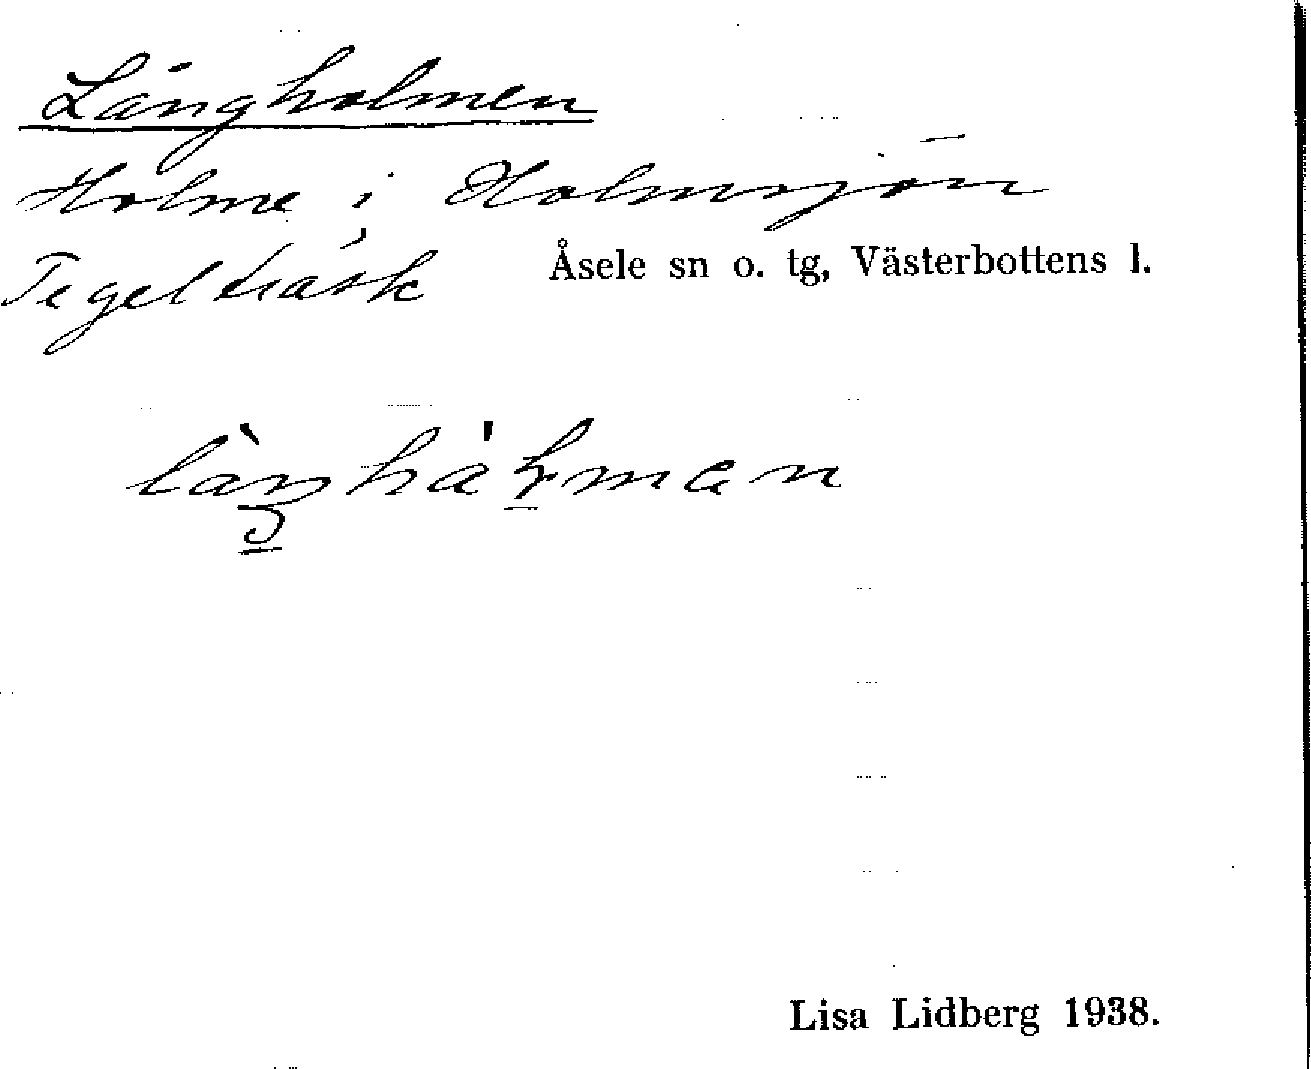 Långholmen
Holme i Holmsjön
Tegelträsk Åsele sn o. tg, Västerbottens l.
Lisa Lidberg 1938.